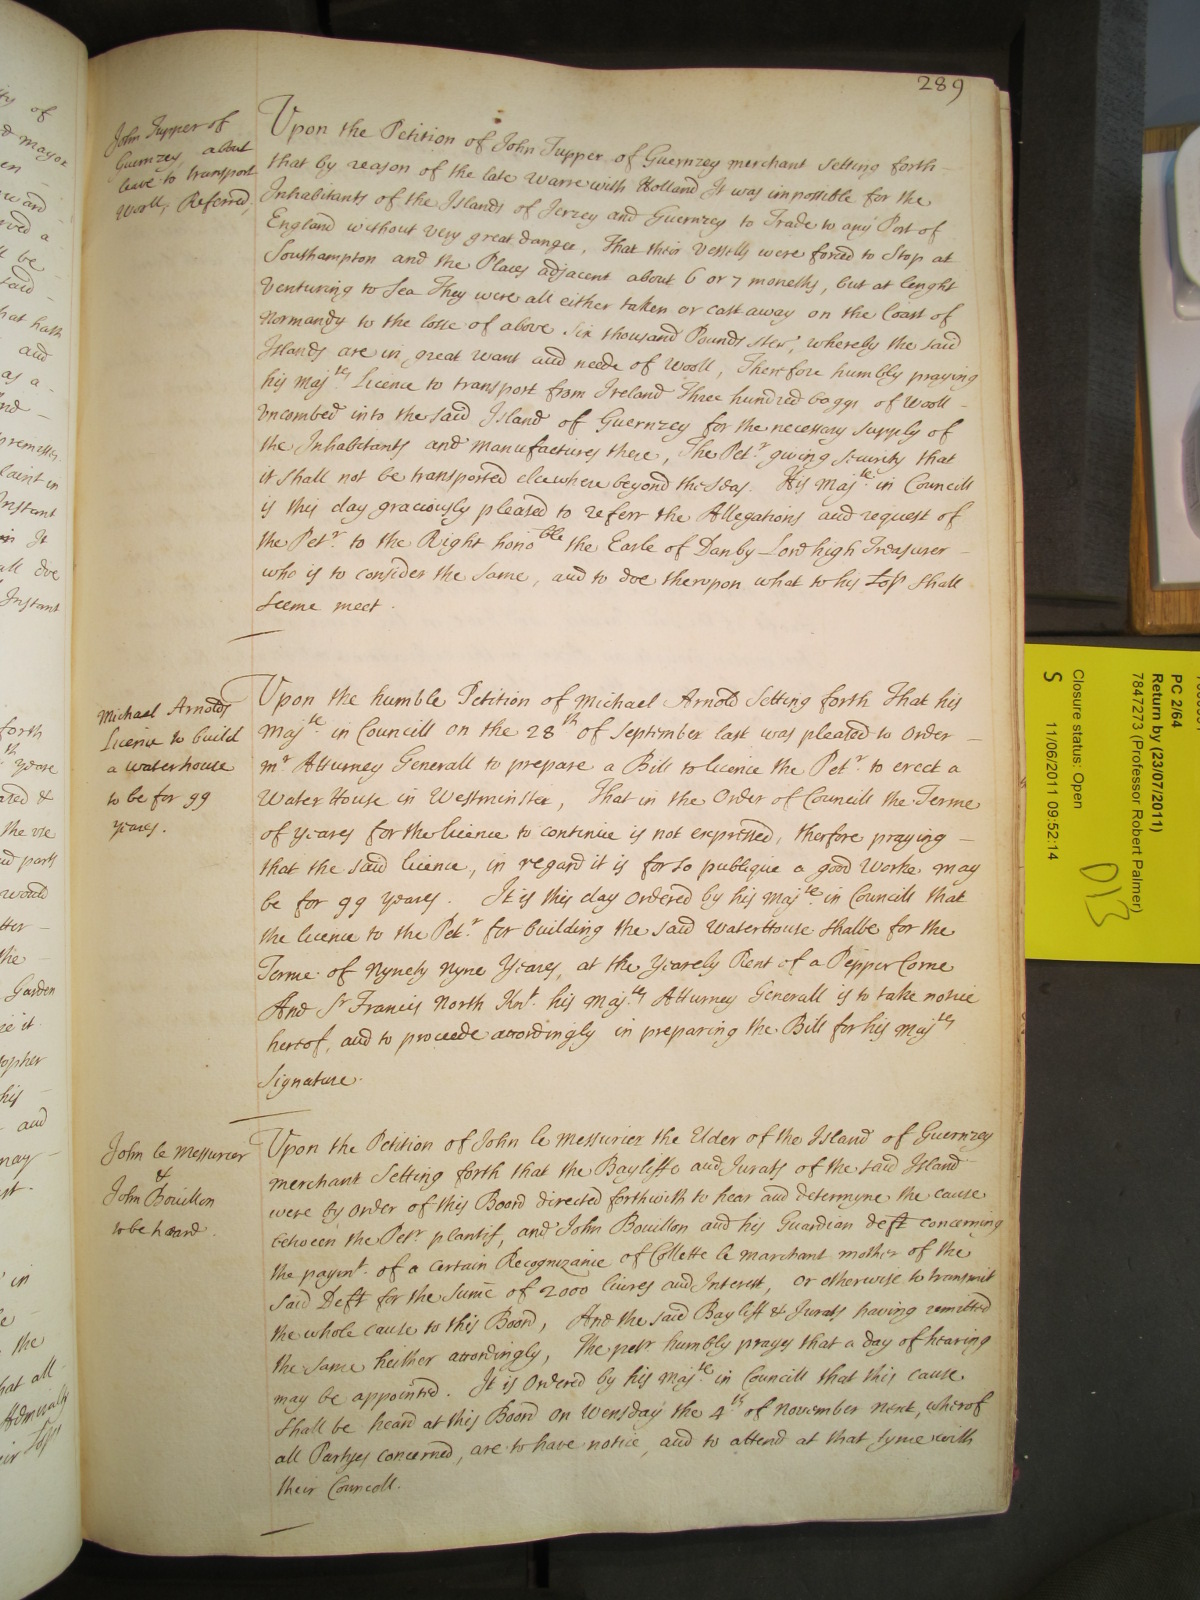 289
John Tupper of
Guernzey, about
leave to transport
Wooll, Referred,
Upon the Petition of John Tupper of Guernzey merchant Setting forth
that by reason of the late Warre with Holland It was impossible for the
Inhabitants of the Islands of Jerzey and Guernzey to Trade to any Port of
England without very great danger, That their Vessells were forced to Stop at
Southampton and the Places adjacent about 6 or 7 moneths, but at lenght
Venturing to Sea They were all either taken or cast away on the Coast of
Normandy to the losse of above Six thousand Pounds ster:, whereby the said
Islands are in great want and neede of Wooll, Therefore humbly praying
his Maj:tes Licence to transport from Ireland Three hundred baggs of Wooll
Uncombed into the said Island of Guernzey for the necessary supply of
the Inhabitants and manufactures there, The Pet:r giving Security that
it shall not be transported elcewhere beyond the Seas. His Maj:te in Councill
is this day graciously pleased to referr the Allegations and request of
the Pet:r to the Right hono:ble the Earle of Danby Lord high Treasurer
who is to consider the same, and to doe therupon what to his Lopp shall
seeme meet.
Michael Arnolds
Licence to build
a waterhouse
to be for 99
yeares.
Upon the humble Petition of Michael Arnold Setting forth That his
Maj:te in Councill on the 28th of September last was pleased to order
Mr Atturney Generall to prepare a Bill to licence the Pet:r to erect a
Water House in Westminster, That in the Order of Councill the Terme
of yeares for the licence to continue is not expressed, therfore praying
that the said licence, in regard it is for so publique a good Worke may
be for 99 yeares. It is this day Ordered by his Maj:te in Councill that
the licence to the Pet:r for building the said WaterHouse shalbe for the
Terme of Nynety Nyne Yeares, at the Yearely Rent of a Pepper Corne
And Sr Francis North Knt. his Maj:tes Atturney Generall is to take notice
hereof, and to proceede accordingly in preparing the Bill for his Maj:tes
Signature.
John le Messurier
&
John Bouillon
to be heard.
Upon the Petition of John le Messurier the Elder of the Island of Guernzey
merchant Setting forth that the Bayliffe and Jurats of the said Island
were by Order of this Board directed forthwith to hear and determyne the cause
between the Petr plantif, and John Bouillon and his Guardian deft concerning
the paymt. of a certain Recognizance of Collette le marchant mother of the
said Deft for the Sume of 2000 livres and Interest, or otherwise to transmit
the whole cause to this Board, And the said Bayliff & Jurats having remitted
the same heither accordingly, The petr humbly prayes that a day of hearing
may be appointed. It is Ordered by his Maj:te in Councill that this cause
shall be heard at this Board on Wensday the 4th of November next, wherof
all Partyes concerned, are to have notice, and to attend at that tyme with
their Councell.
PC 2/64
Return by (23/07/2011)
7847273 (Professor Robert Palmer)
Closure status: Open
S 11/06/2011 09:52:14